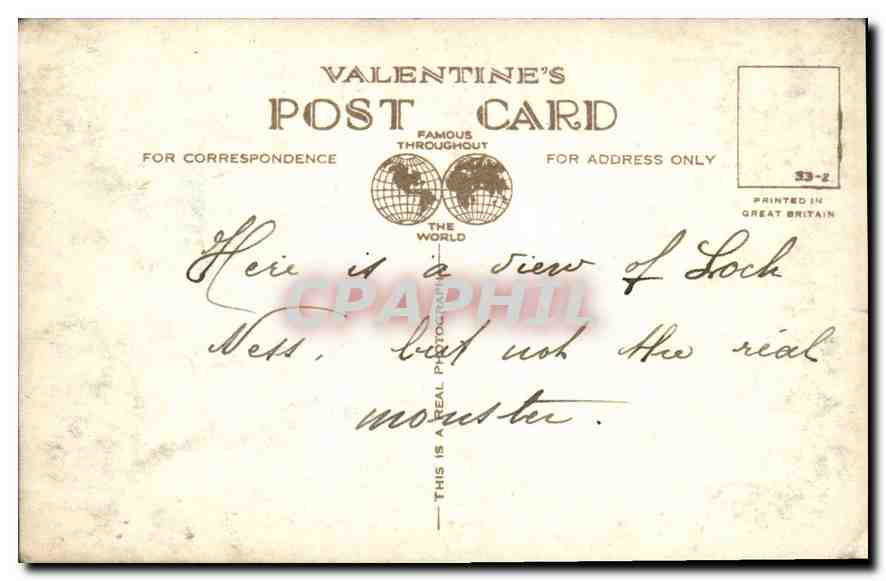 VALENTINE'S
POST CARD
FAMOUS
THROUGHOUT
FOR CORRESPONDENCE
FOR ADDRESS ONLY
THE
WORLD
33-2
PRINTED IN
GREAT BRITAIN
Here is a view of Loch
Ness, but not the real
monster.
THIS IS A REAL PHOTOGRAPH
CPAPHIL